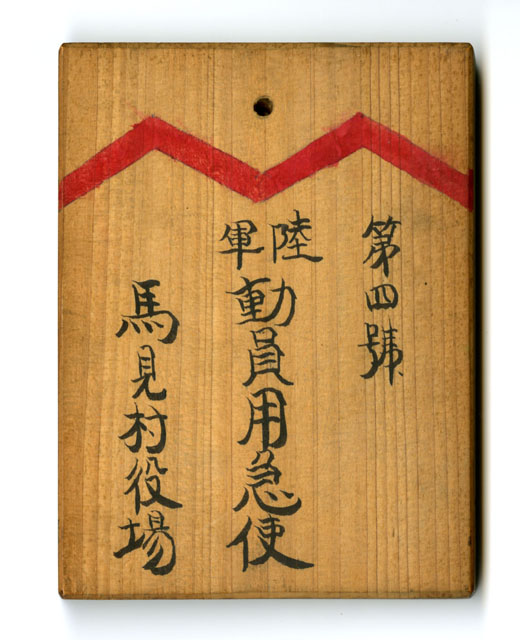 第四號
陸軍動員用急使
馬見村役場